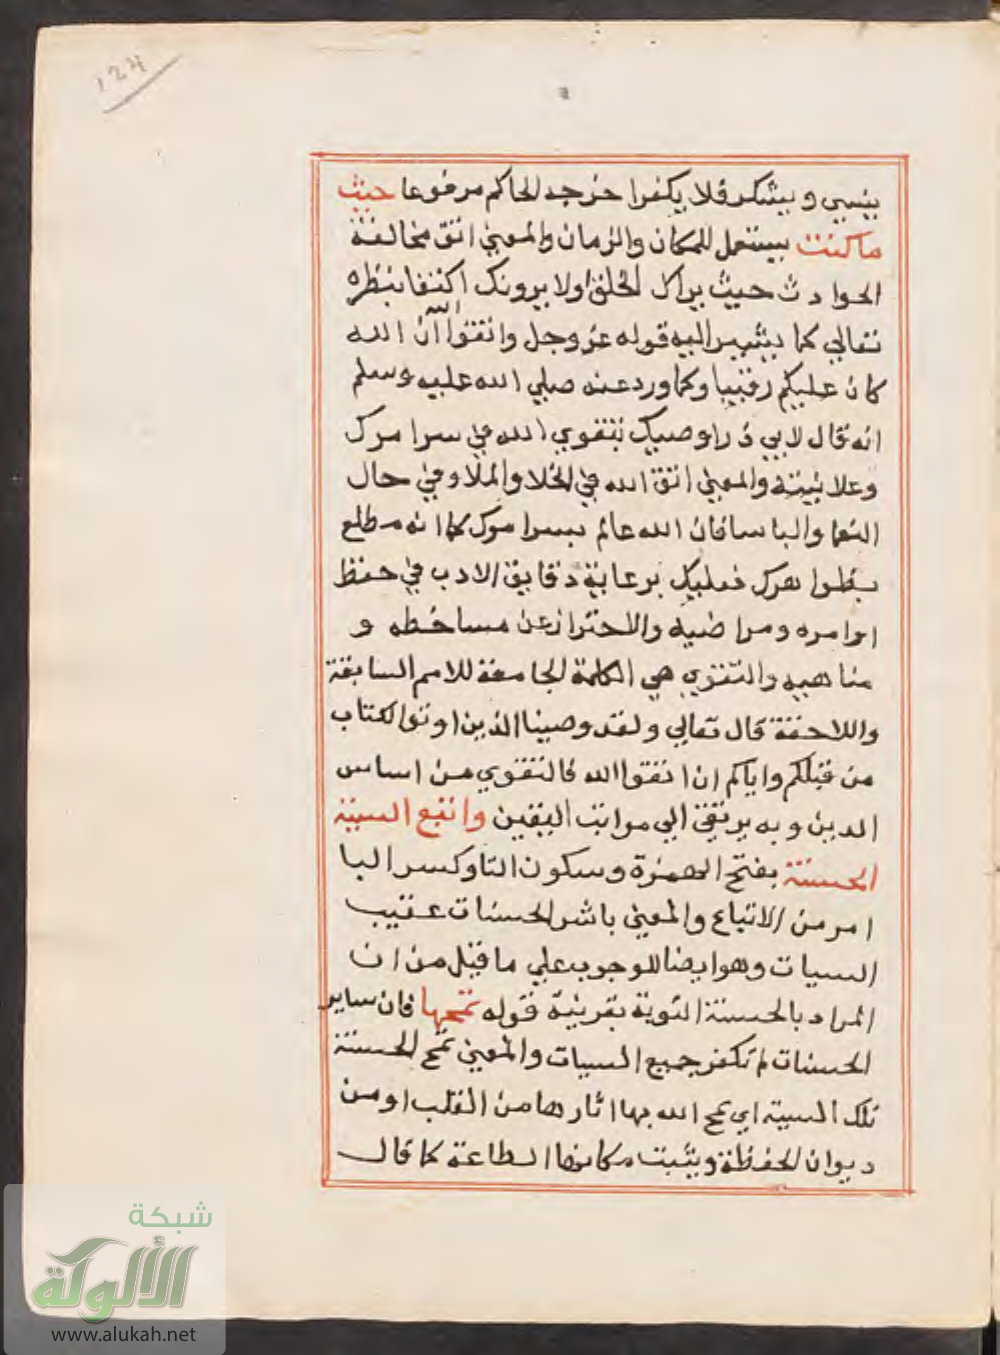 124
ينسي ويشكر فلا يكفر اخرجه الحاكم مرفوعا حيث
ما كنت يستعمل للمكان والزمان والمعني اتق مخالفة
الحوادث حيث يراك الخلق اولا يرونك اكتفا بنظره
تعالي كما يشير اليه قوله عز وجل واتقوا الله ان الله
كان عليكم رقيبا وكما ورد عنه صلي الله عليه وسلم
انه قال لابي ذر اوصيك بتقوي الله في سر امرك
وعلانيته والمعني اتق الله في الخلا والملا وفي حال
النعما والباسا فان الله عالم بسر امرك كما انه مطلع
بظواهرك فعليك برعاية دقايق الادب في حفظ
اوامره ومراضيه والاحتراز عن مساخطه و
مناهيه والتقوي هي الكلمة الجامعة للامم السابقة
واللاحقة قال تعالي ولقد وصينا الذين اوتوا الكتاب
من قبلكم واياكم ان اتقوا الله فالتقوي من اساس
الدين وبه يرتقي الي مراتب اليقين واتبع السيئة
الحسنة بفتح الهمزة وسكون التا وكسر البا
امر من الاتباع والمعني باشر الحسنات عقيب
السيات وهو ايضا للوجوب علي ما قيل من ان
المراد بالحسنة التوبة بقرينة قوله تمحها فان ساير
الحسنات لم تكفر جميع السيات والمعني تمح الحسنة
تلك السيئة اي يمح الله بها اثارها من القلب او من
ديوان الحفظة ويثبت مكانها الطاعة كما قال
شبكة
الألوكة
www.alukah.net